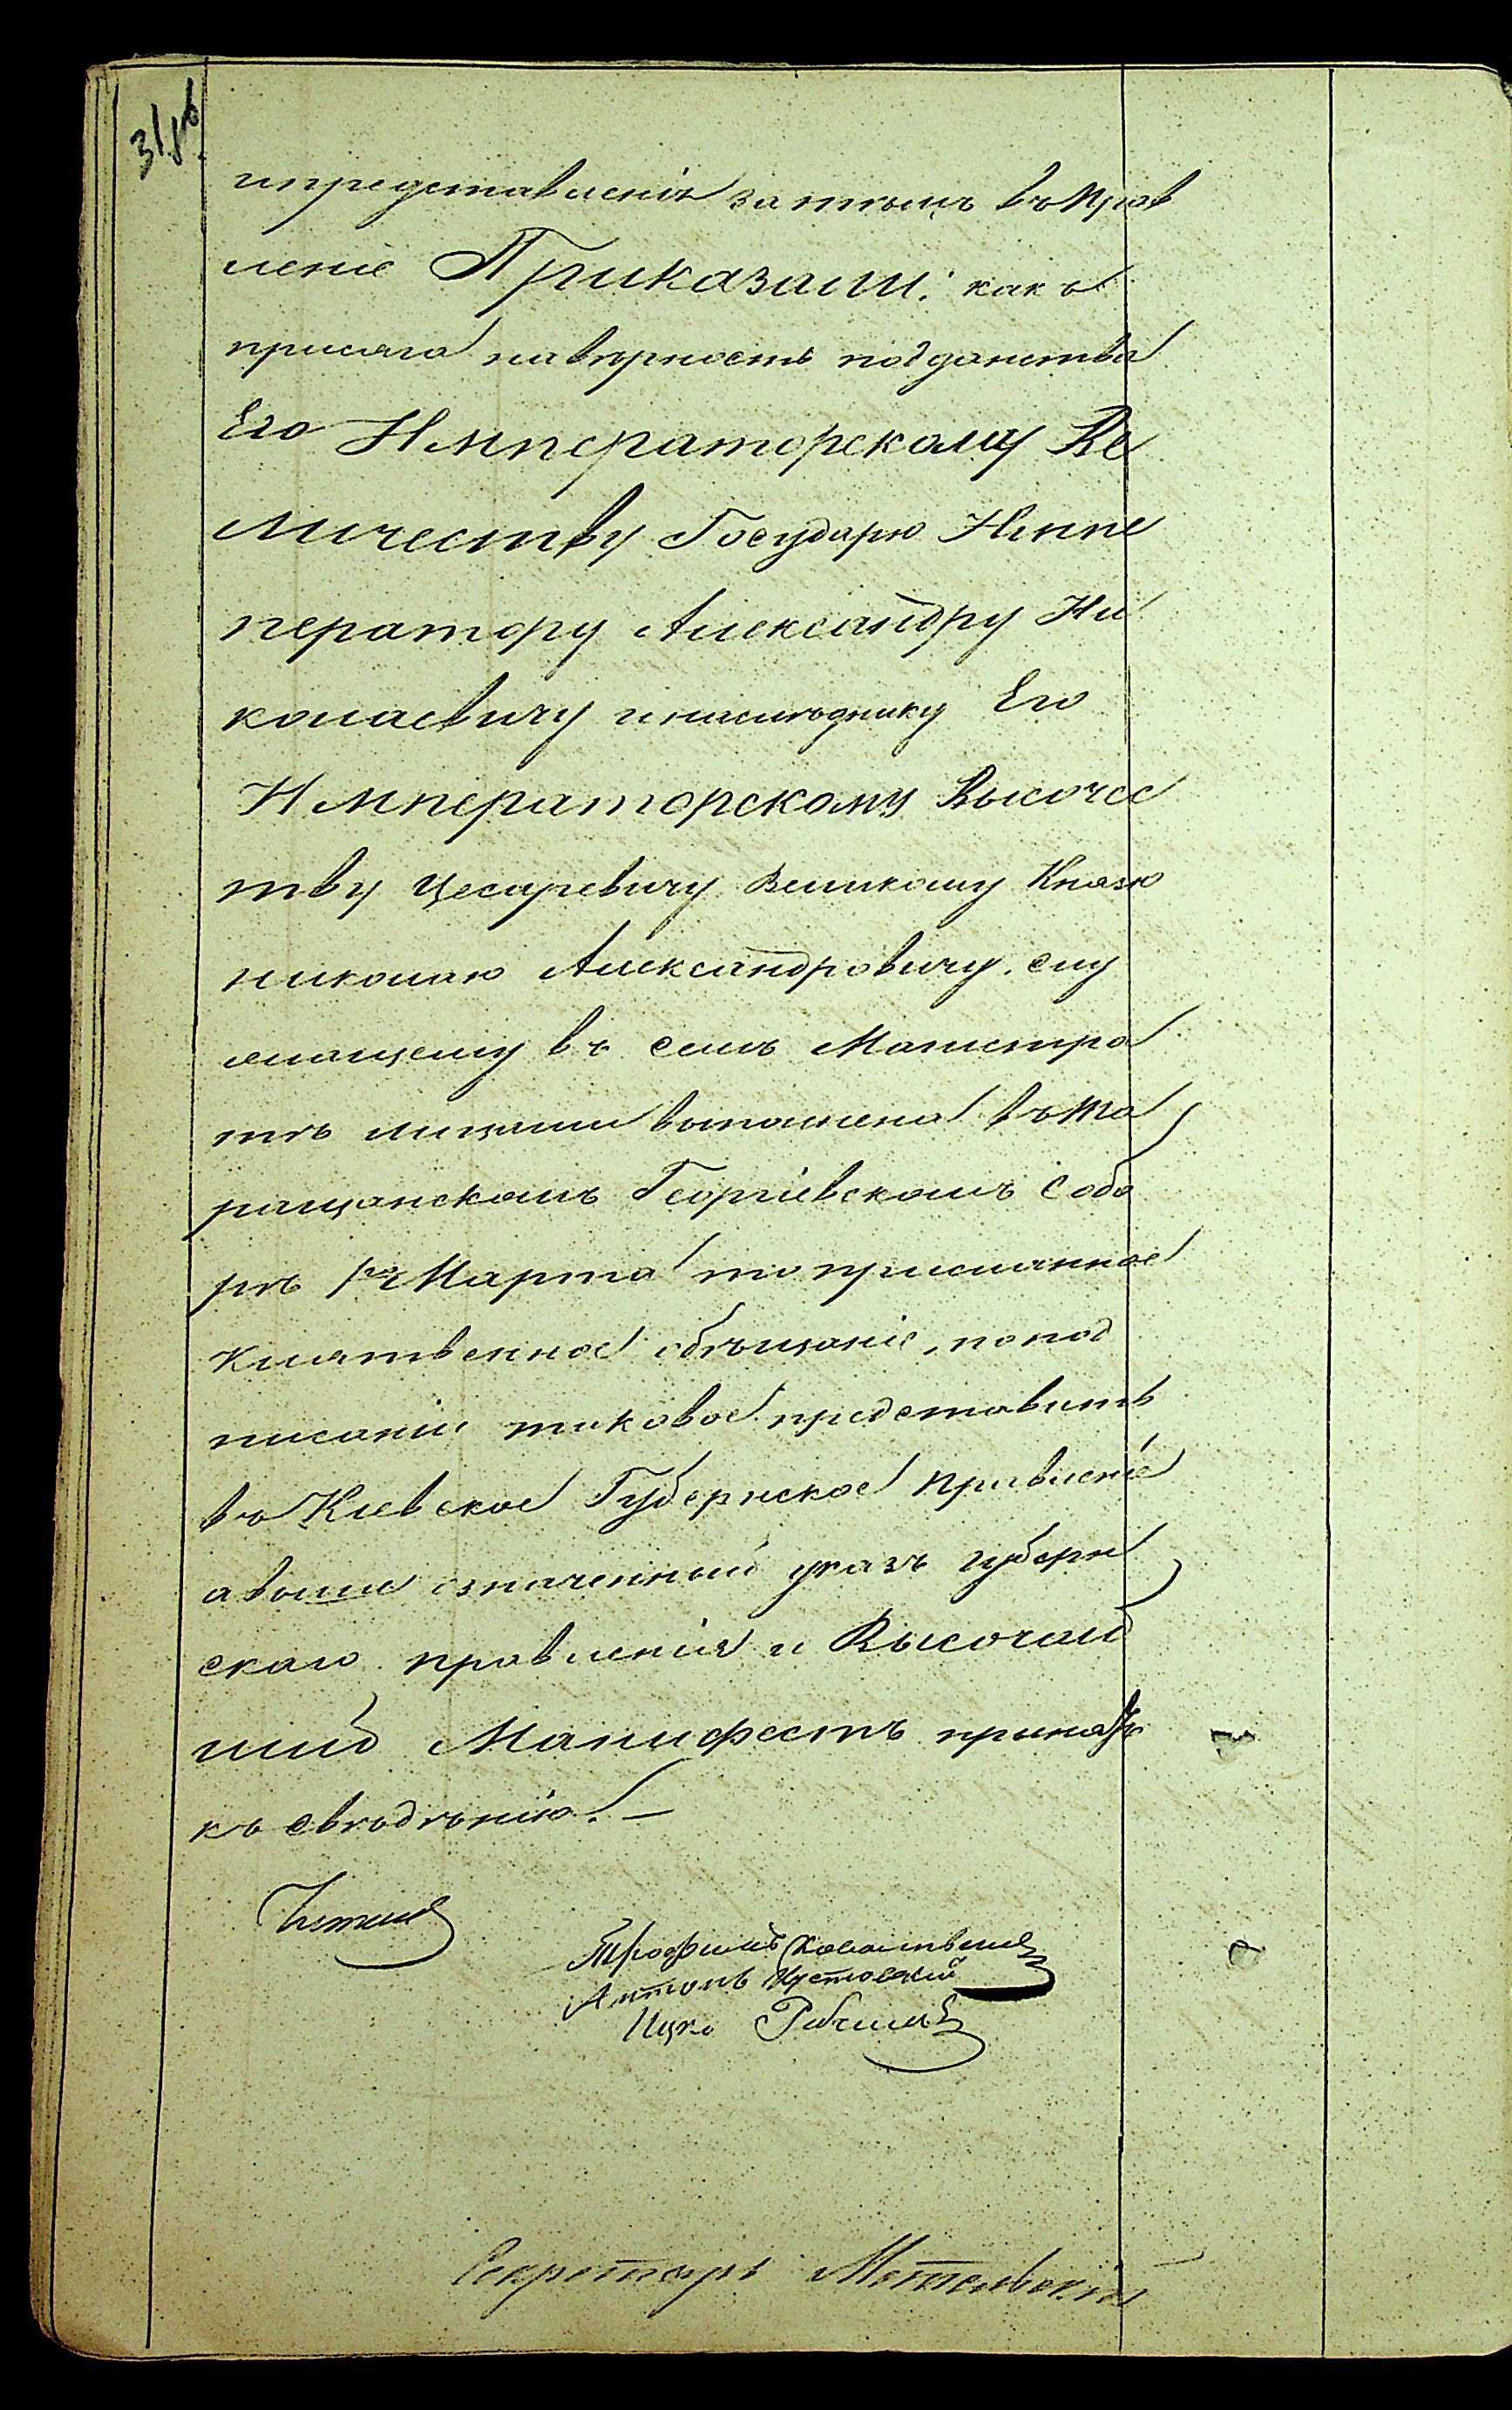 31 об.
и представленія затемъ въ Прав
леніе Приказали: какъ
присяга на верность подданства
Его Императорскому Ве
личеству Государю Импе
ператору Александру Ни
колаевичу и наследнику Его
Императорскому Высочес
тву Цесаревичу Великому Князю
Николаю Александровичу. слу
жащему въ семъ Магистра
тѣ лицами выполнена въ Та
ращанскомъ Георгіевскомъ Собо
рѣ 1го Марта то присланное
Клятвенное обѣщаніе, по под
писаніи таковое представить
въ Кіевское Губернское Правленіе
а выше означенный указъ губерн
скаго правленія и Высочай
шій Манифестъ принять
къ сведѣнію. —
Трофимъ
Антонъ
Ицко
Секретарь